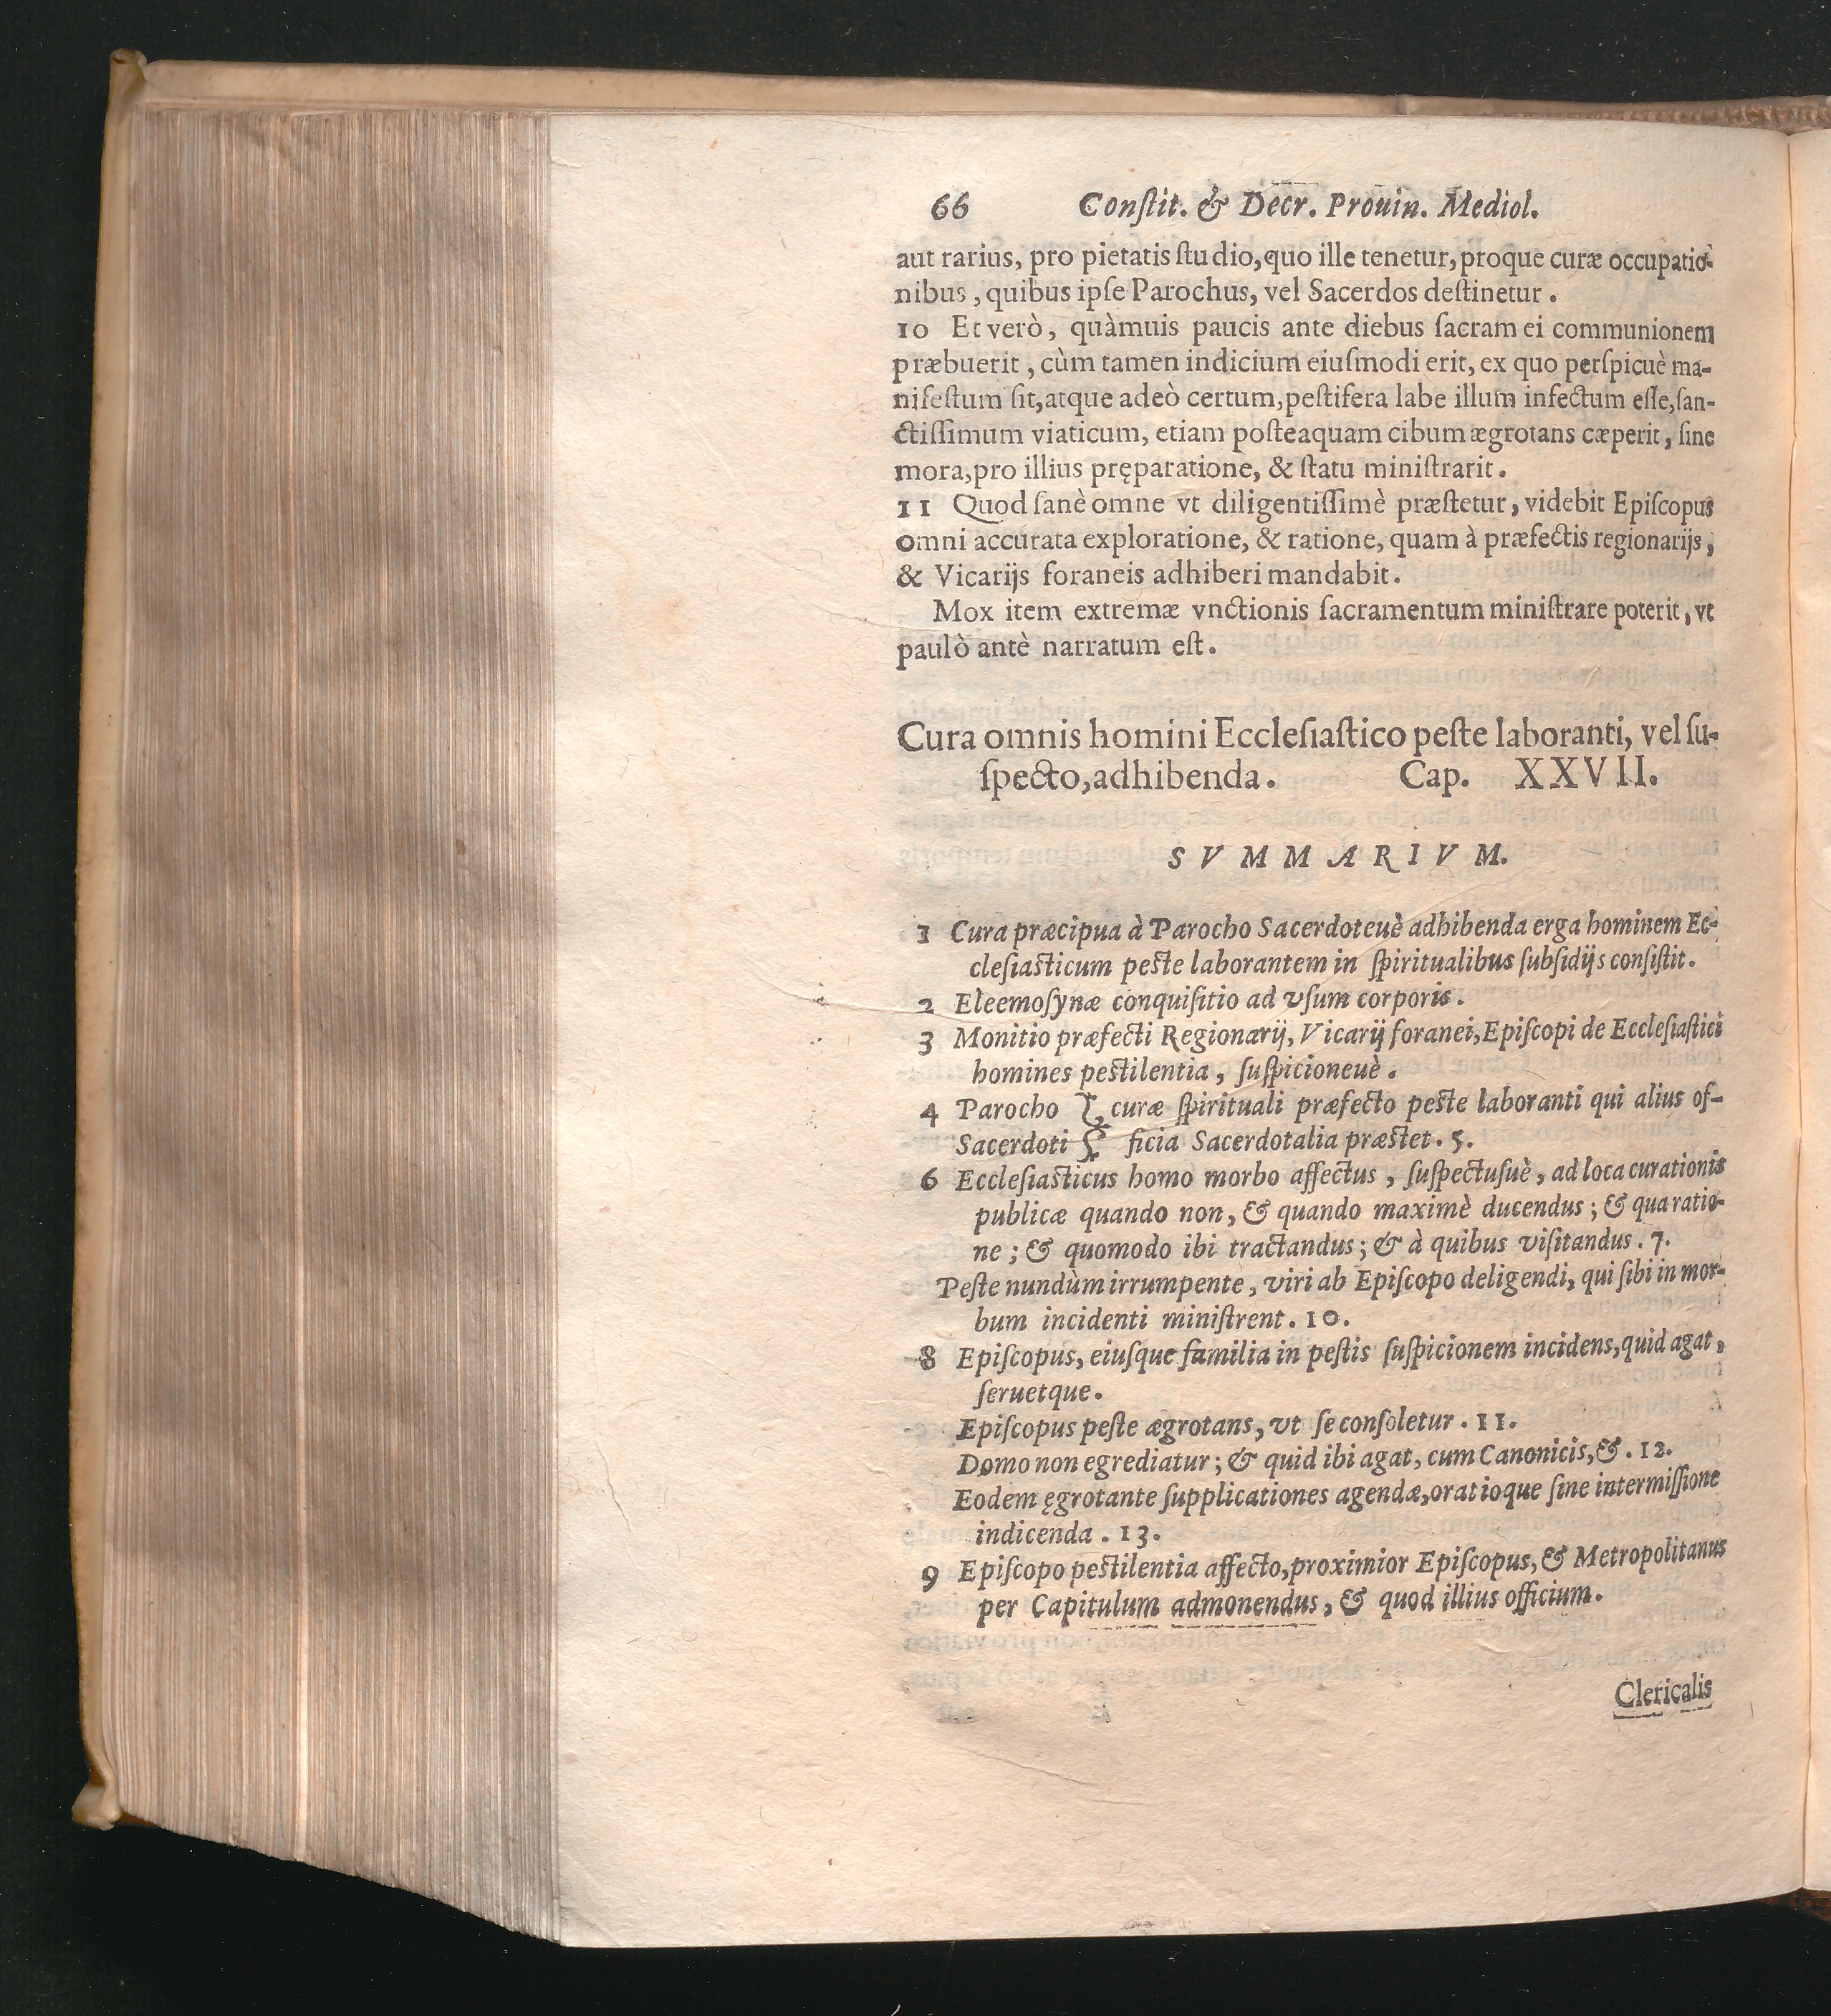 66 Conſtit. & Decr. Prouin. Mediol.
aut rarius, pro pietatis ſtudio, quo ille tenetur, proque curæ occupatio-
nibus, quibus ipſe Parochus, vel Sacerdos deſtinetur.
10 Et verò, quàmuis paucis ante diebus ſacram ei communionem
præbuerit, cùm tamen indicium eiuſmodi erit, ex quo perſpicuè ma-
nifeſtum ſit, atque adeò certum, peſtifera labe illum infectum eſſe, ſan-
ctiſſimum viaticum, etiam poſteaquam cibum ægrotans cæperit, ſine
mora, pro illius pręparatione, & ſtatu miniſtrarit.
11 Quod ſanè omne vt diligentiſſimè præſtetur, videbit Epiſcopus
omni accurata exploratione, & ratione, quam à præfectis regionarijs,
& Vicarijs foraneis adhiberi mandabit.
Mox item extremæ vnctionis ſacramentum miniſtrare poterit, vt
paulò antè narratum eſt.
Cura omnis homini Eccleſiaſtico peſte laboranti, vel ſu-
ſpecto, adhibenda. Cap. XXVII.
SVMMARIVM.
1 Cura præcipua à Parocho Sacerdoteuè adhibenda erga hominem Ec-
cleſiaſticum peſte laborantem in ſpiritualibus ſubſidijs conſiſtit.
2 Eleemoſynæ conquiſitio ad vſum corporis.
3 Monitio præfecti Regionarij, Vicarij foranei, Epiſcopi de Eccleſiaſtici
homines peſtilentia, ſuſpicioneuè.
4 Parocho } curæ ſpirituali præfecto peſte laboranti qui alius of-
Sacerdoti } ficia Sacerdotalia præſtet. 5.
6 Eccleſiaſticus homo morbo affectus, ſuſpectuſuè, ad loca curationis
publicæ quando non, & quando maximè ducendus; & qua ratio-
ne; & quomodo ibi tractandus; & à quibus viſitandus. 7.
Peſte nundùm irrumpente, viri ab Epiſcopo deligendi, qui ſibi in mor-
bum incidenti miniſtrent. 10.
8 Epiſcopus, eiuſque familia in peſtis ſuſpicionem incidens, quid agat,
ſeruetque.
Epiſcopus peſte ægrotans, vt ſe conſoletur. 11.
Domo non egrediatur; & quid ibi agat, cum Canonicis, &. 12.
Eodem ęgrotante ſupplicationes agendæ, oratioque ſine intermiſſione
indicenda. 13.
9 Epiſcopo peſtilentia affecto, proximior Epiſcopus, & Metropolitanus
per Capitulum admonendus, & quod illius officium.
Clericalis